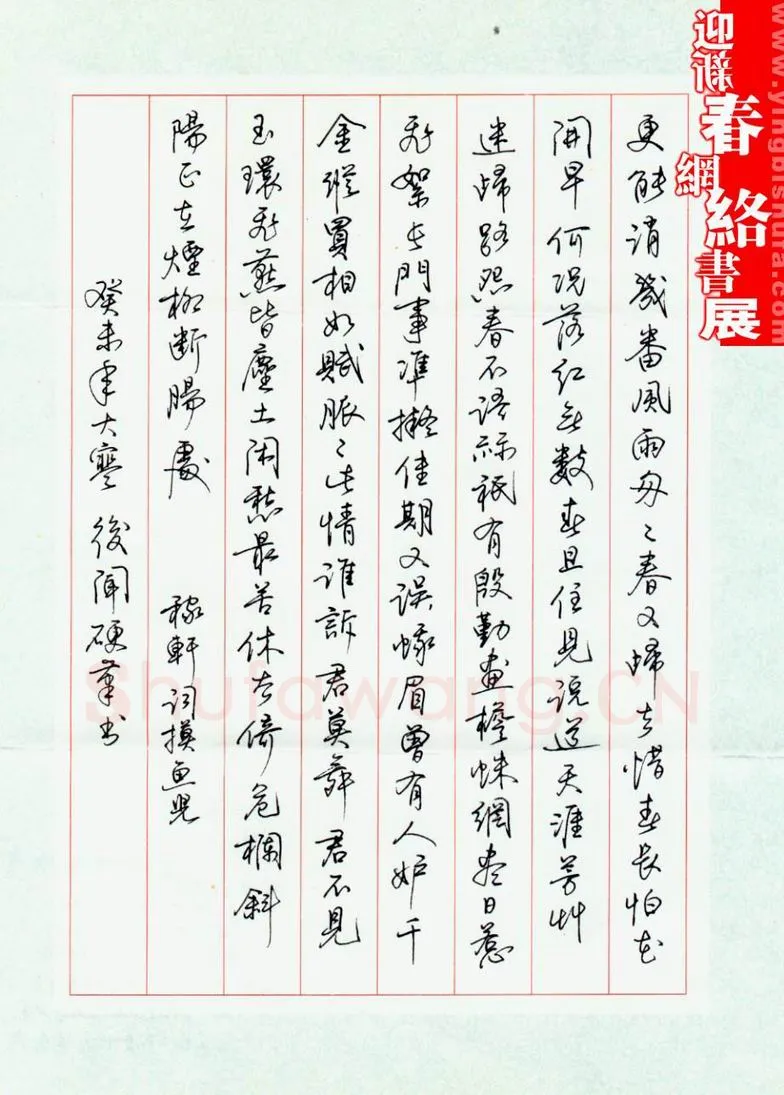 迎新春
網絡書展
www.yingbishufa.com
更能消幾番風雨匆〻春又歸去惜春長怕花
開早何況落紅無數春且住見說道天涯芳艸
迷歸路怨春不語祇有殷勤畫檐蛛網盡日惹
飛絮長門事準擬佳期又誤蛾眉曾有人妒千
金縱買相如賦脈〻此情誰訴君莫舞君不見
玉環飛燕皆塵土閑愁最苦休去倚危欄斜
陽正在煙柳斷腸處 稼軒詞摸魚兒
癸未年大寒後聞硬筆書
Shufawang.CN